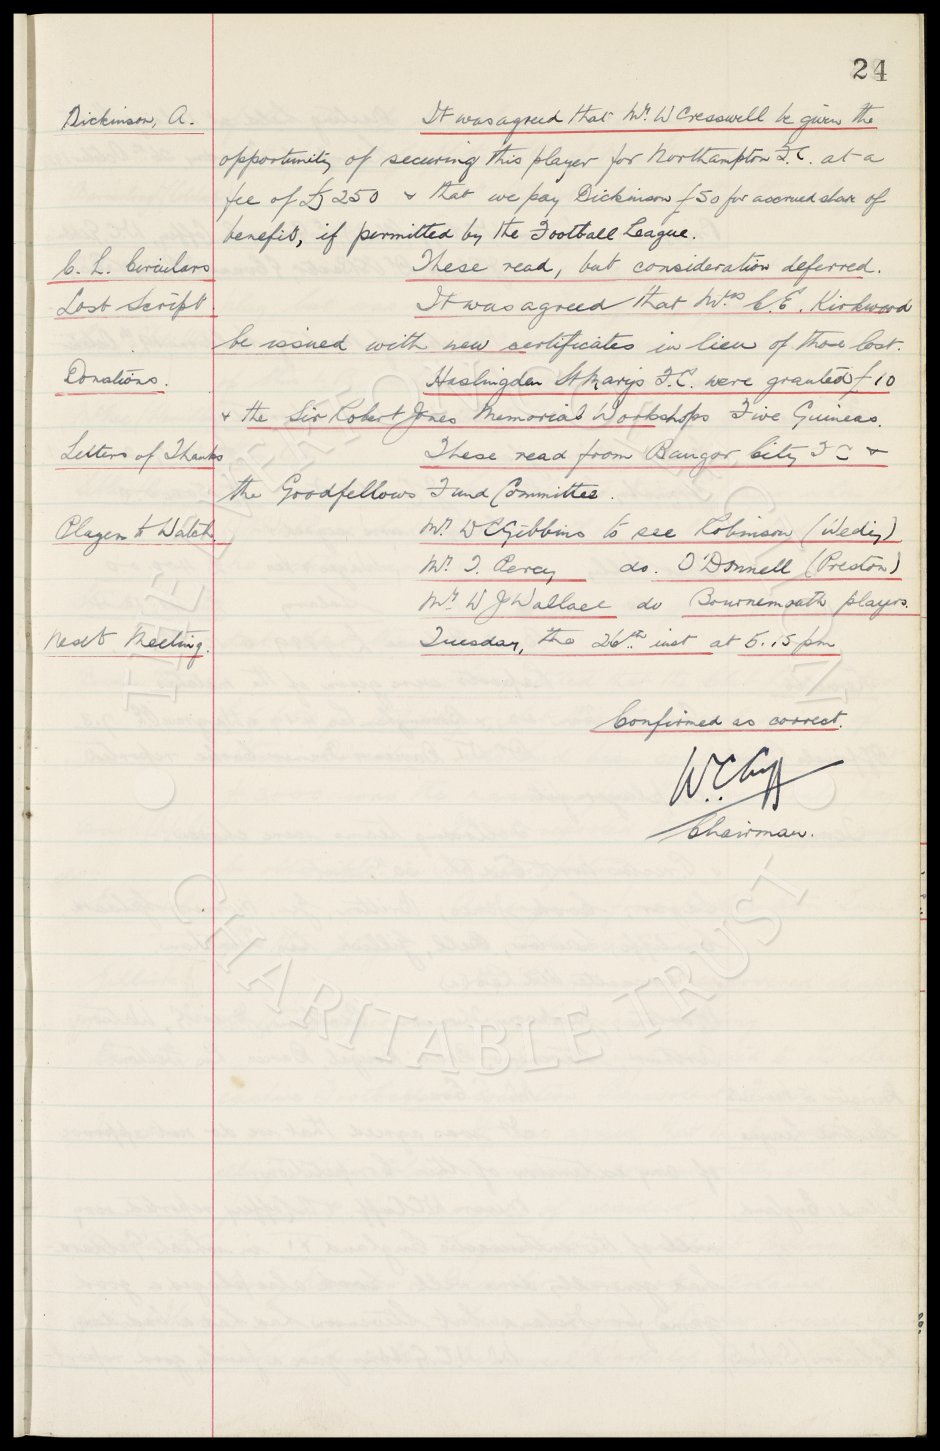 24
Dickinson, A. It was agreed that Mr. W Cresswell be given the
opportunity of securing this player for Northampton F.C. at a
fee of £250 & that we pay Dickinson £50 for accrued share of
benefit, if permitted by the Football League.
C. L. Circulars These read, but consideration deferred.
Lost Script. It was agreed that Mrs C. E. Kirkwood
be issued with new certificates in lieu of those lost.
Donations. Haslingden St Marys F.C. were granted £10
& the Sir Robert Jones Memorial Workshops Five Guineas.
Letters of Thanks These read from Bangor City F C &
the Goodfellows Fund Committee.
Players to Watch. Mr. W C Gibbins to see Robinson (Wedy)
Mr. T. Percy do. O'Donnell (Preston)
Mr. W J Wallace do Bournemouth players.
Next Meeting. Tuesday, the 26th. inst at 5.15 pm
Confirmed as correct.
W.C. Cuff
Chairman.
THE EVERTON COLLECTION
CHARITABLE TRUST